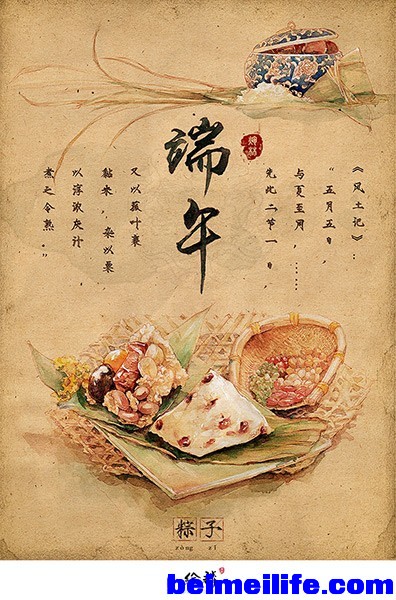 端午
《风土记》:
“五月五日,
与夏至同,……
先此二节一日,
又以菰叶裹
黏米,杂以粟
以淳浓灰汁,
煮之令熟。”
粽子
zòng zǐ
beimeilife.com